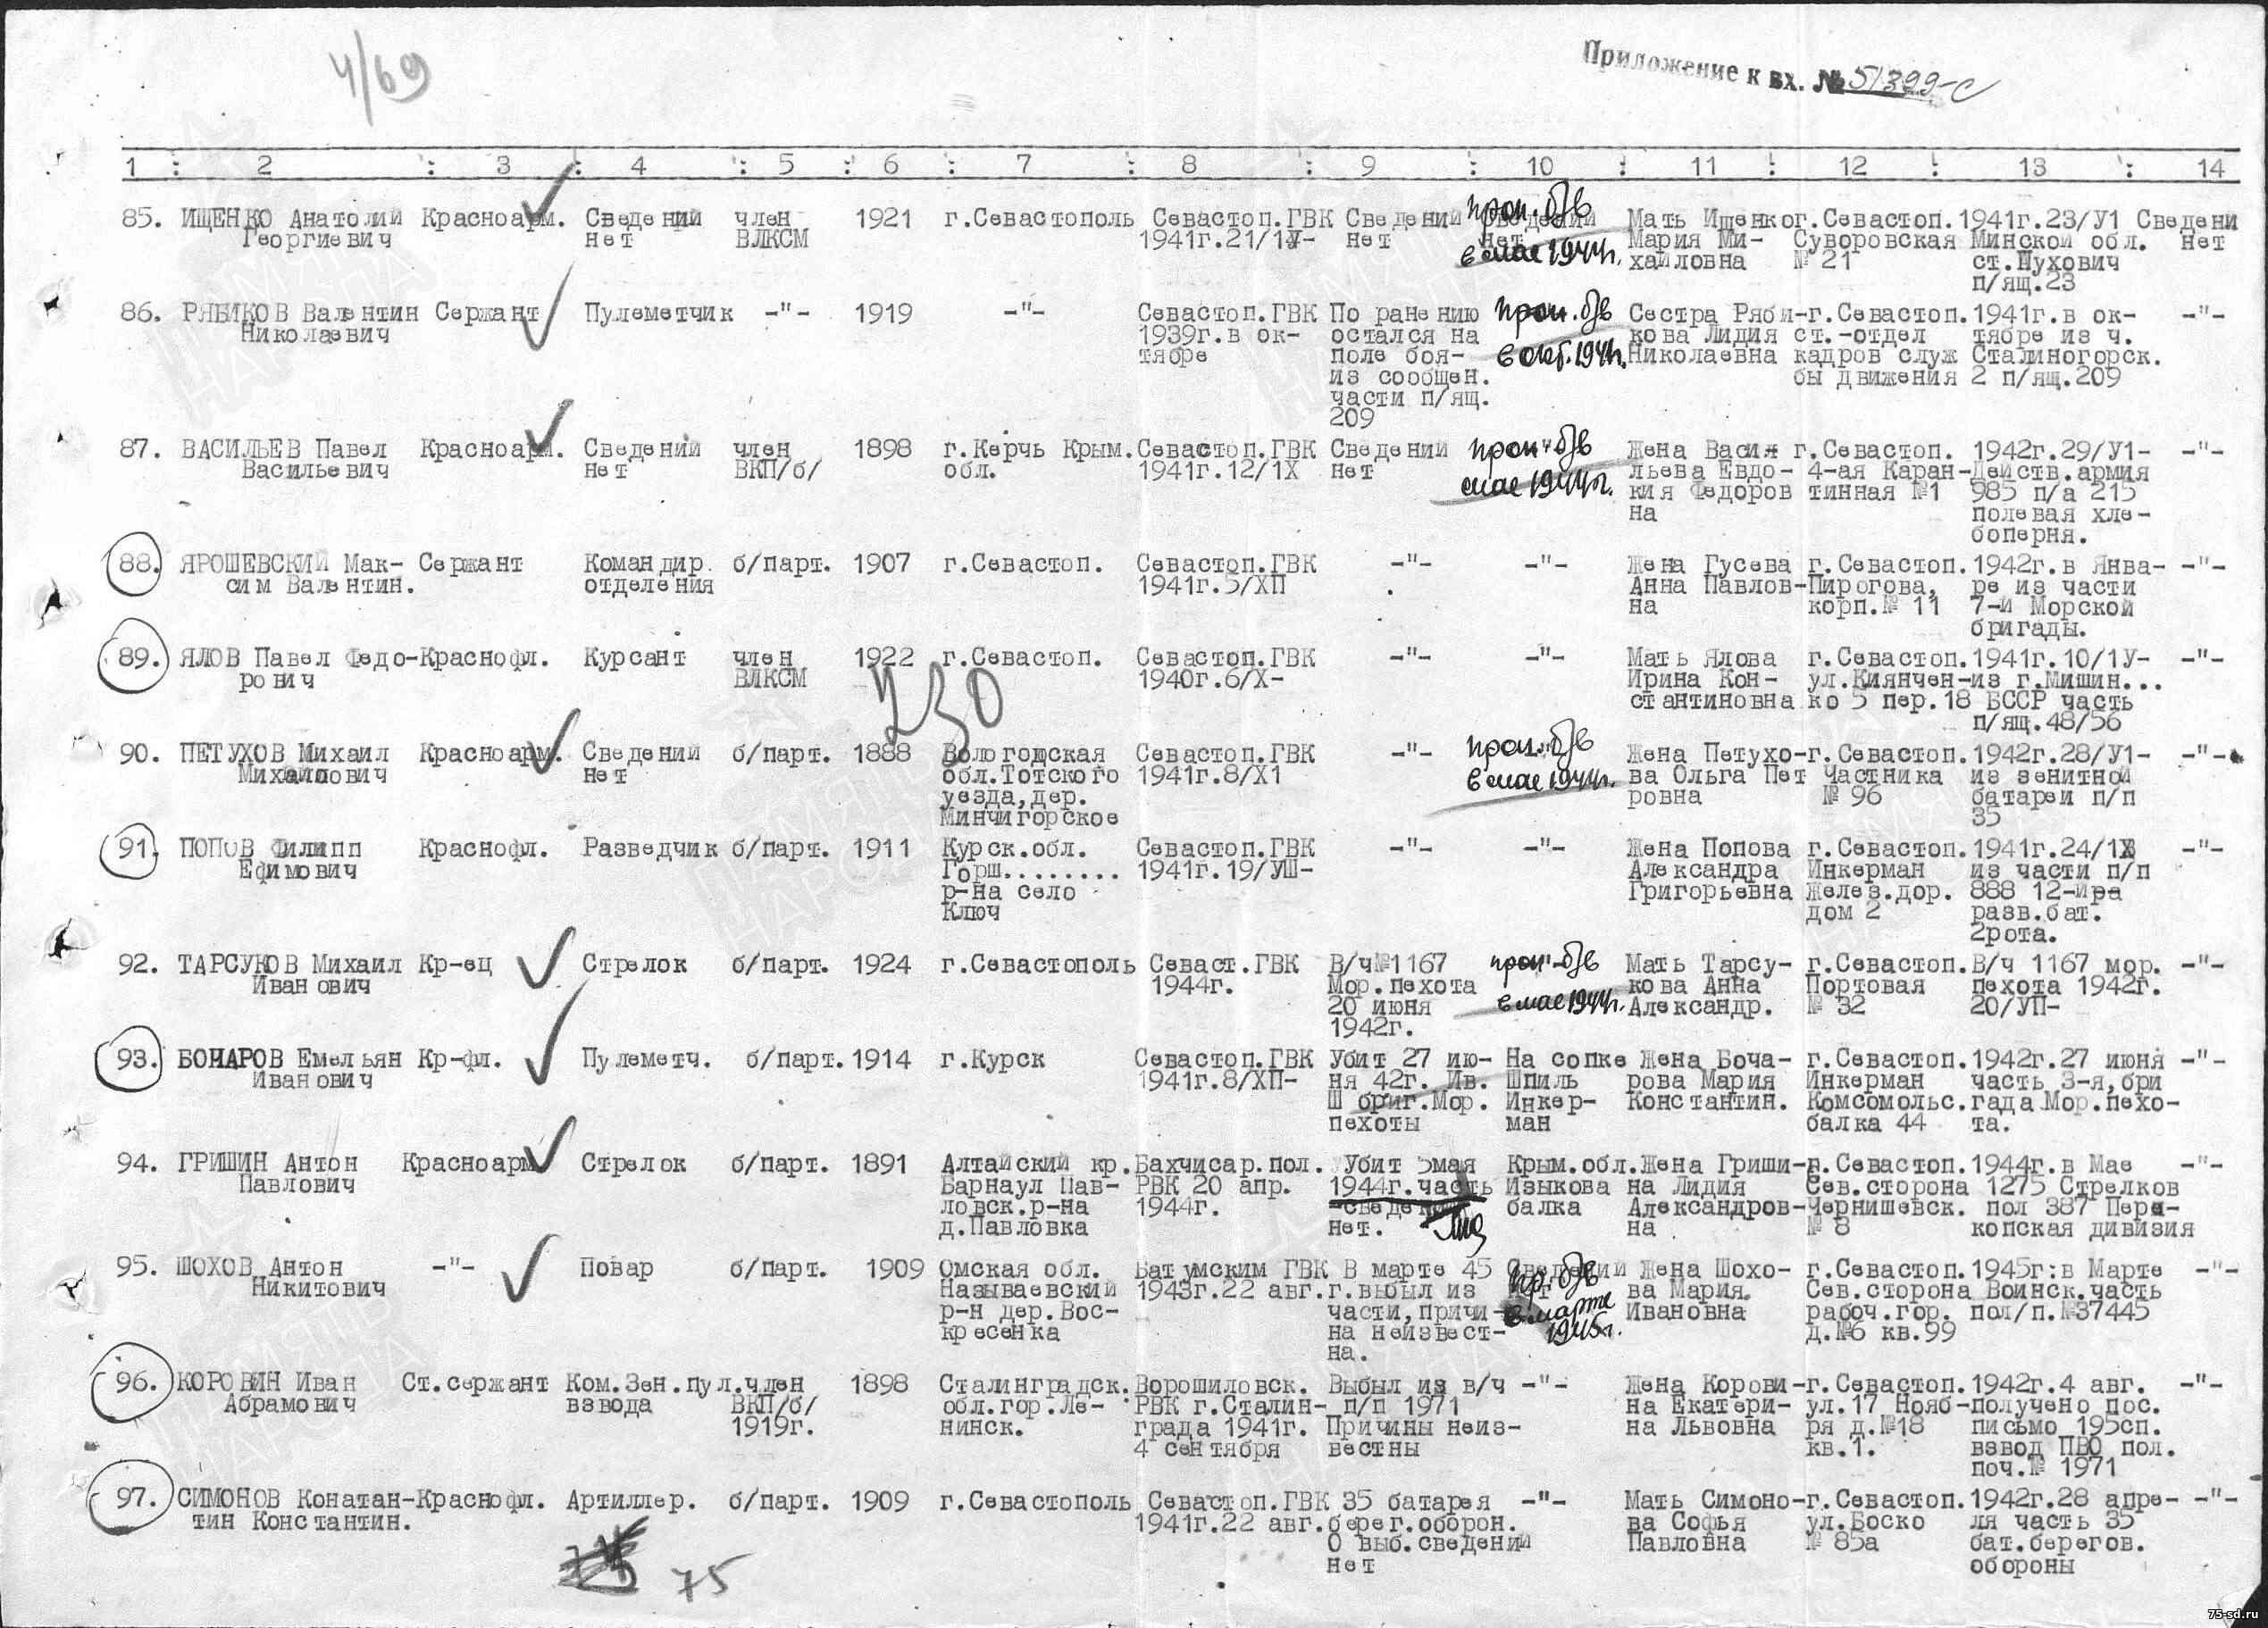 4/69
Приложение к вх. № 51399-с
1 : 2 : 3 : 4 : 5 : 6 : 7 : 8 : 9 : 10 : 11 : 12 : 13 : 14
85. ИЩЕНКО Анатолий Красноарм. Сведений член 1921 г.Севастополь Севастоп.ГВК Сведений Сведений Мать Ищенко г.Севастоп. 1941г.23/У1 Сведени
Георгиевич нет ВЛКСМ 1941г.21/1У- нет нет Мария Ми- Суворовская Минской обл. нет
проп. б/в в мае 1944г. хайловна № 21 ст.Пухович
п/ящ.23
86. РЯБИКОВ Валентин Сержант Пулеметчик -"- 1919 -"- Севастоп.ГВК По ранению проп. б/в Сестра Ряби- г.Севастоп. 1941г.в ок- -"-
Николаевич 1939г.в ок- остался на кова Лидия ст.-отдел тябре из ч.
тябре поле боя- в окт. 1941г. Николаевна кадров служ Сталиногорск.
из сообщен. бы движения 2 п/ящ.209
части п/ящ.
209
87. ВАСИЛЬЕВ Павел Красноарм. Сведений член 1898 г.Керчь Крым. Севастоп.ГВК Сведений проп. б/в Жена Васи г.Севастоп. 1942г.29/У1- -"-
Васильевич нет ВКП/б/ обл. 1941г.12/1Х нет мае 1944г. льева Евдо- 4-ая Каран- Действ.армия
кия Федоров тинная №1 985 п/а 215
на полевая хле-
боперня.
88. ЯРОШЕВСКИЙ Мак- Сержант Командир б/парт. 1907 г.Севастоп. Севастоп.ГВК -"- -"- Жена Гусева г.Севастоп. 1942г.в Янва- -"-
сим Валентин. отделения 1941г.5/ХП Анна Павлов- Пирогова, ре из части
на корп.№ 11 7-й Морской
бригады.
89. ЯЛОВ Павел Федо- Краснофл. Курсант член 1922 г.Севастоп. Севастоп.ГВК -"- -"- Мать Ялова г.Севастоп. 1941г.10/1У- -"-
рович ВЛКСМ 1940г.6/Х- Ирина Кон- ул.Киянчен- из г.Мишин...
стантиновна ко 5 пер.18 БССР часть
п/ящ.48/56
230
90. ПЕТУХОВ Михаил Красноарм. Сведений б/парт. 1888 Вологодская Севастоп.ГВК -"- проп. б/в Жена Петухо- г.Севастоп. 1942г.28/У1- -"-
Михайлович нет обл.Тотского 1941г.8/Х1 в мае 1944г. ва Ольга Пет Частника из зенитной
уезда,дер. ровна № 96 батареи п/п
Минчигорское 35
91. ПОПОВ Филипп Краснофл. Разведчик б/парт. 1911 Курск.обл. Севастоп.ГВК -"- -"- Жена Попова г.Севастоп. 1941г.24/1Х -"-
Ефимович Горш........ 1941г.19/УШ- Александра Инкерман из части п/п
р-на село Григорьевна Желез.дор. 888 12-й
Ключ дом 2 разв.бат.
2рота.
92. ТАРСУКОВ Михаил Кр-ец Стрелок б/парт. 1924 г.Севастополь Севаст.ГВК В/ч№1167 проп. б/в Мать Тарсу- г.Севастоп. В/ч 1167 мор. -"-
Иванович 1944г. Мор.пехота кова Анна Портовая пехота 1942г.
20 июня в мае 1944г. Александр. № 32 20/УП-
1942г.
93. БОНАРОВ Емельян Кр-фл. Пулеметч. б/парт. 1914 г.Курск Севастоп.ГВК Убит 27 ию- На сопке Жена Боча- г.Севастоп. 1942г.27 июня -"-
Иванович 1941г.8/ХП- ня 42г. Ив. Шпиль рова Мария Инкерман часть 3-я,бри
Ш бриг.Мор. Инкер- Константин. Комсомольс. гада Мор.пехо-
пехоты ман балка 44 та.
94. ГРИШИН Антон Красноарм Стрелок б/парт. 1891 Алтайский кр. Бахчисар.пол. Убит 5мая Крым.обл. Жена Гриши- г.Севастоп. 1944г.в Мае -"-
Павлович Барнаул Пав- РВК 20 апр. 1944г.часть Изыкова на Лидия Сев.сторона 1275 Стрелков
ловск.р-на 1944г. -сведений балка Александров- Чернишевск. пол 387 Пере-
д.Павловка нет. на № 8 копская дивизия
95. ШОХОВ Антон -"- Повар б/парт. 1909 Омская обл. Батумским ГВК В марте 45 Сведений Жена Шохо- г.Севастоп. 1945г:в Марте -"-
Никитович Называевский 1943г.22 авг. г.выбыл из нет ва Мария. Сев.сторона Воинск.часть
р-н дер.Вос- части,причи- пр. б/в в марте 1945г. Ивановна рабоч.гор. пол/п.№37445
кресенка на неизвест- д.№6 кв.99
на.
96. КОРОВИН Иван Ст.сержант Ком.Зен.пул. член 1898 Сталинградск. Ворошиловск. Выбыл из в/ч -"- Жена Корови- г.Севастоп. 1942г.4 авг. -"-
Абрамович взвода ВКП/б/ обл.гор.Ле- РВК г.Сталин- п/п 1971 на Екатери- ул.17 Нояб- получено пос.
1919г. нинск. града 1941г. Причины неиз- на Львовна ря д.№18 письмо 195сп.
4 сентября вестны кв.1. взвод ПВО пол.
поч.№ 1971
97. СИМОНОВ Конатан- Краснофл. Артиллер. б/парт. 1909 г.Севастополь Севастоп.ГВК 35 батарея -"- Мать Симоно- г.Севастоп. 1942г.28 апре- -"-
тин Константин. 1941г.22 авг. берег.оборон. ва Софья ул.Боско ля часть 35
О выб.сведений Павловна № 85а бат.берегов.
нет обороны
75
75-sd.ru